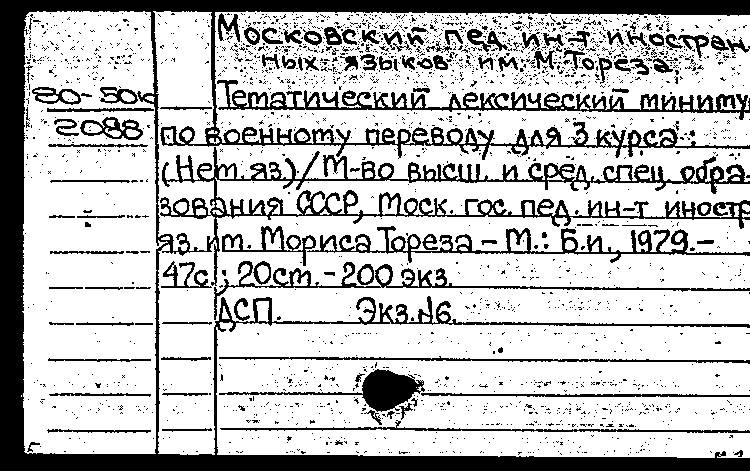 Московский пед ин-т иностран
ных языков им. М. Тореза,
80-50к
2088
Тематический лексический миниму
по военному переводу для 3 курса :
(Нем. яз.) / М-во высш. и сред. спец. обра-
зования СССР, Моск. гос. пед. ин-т иностр
яз. им. Мориса Тореза – М.: Б.и., 1979.–
47с.; 20см. – 200 экз.
ДСП. Экз.№6.